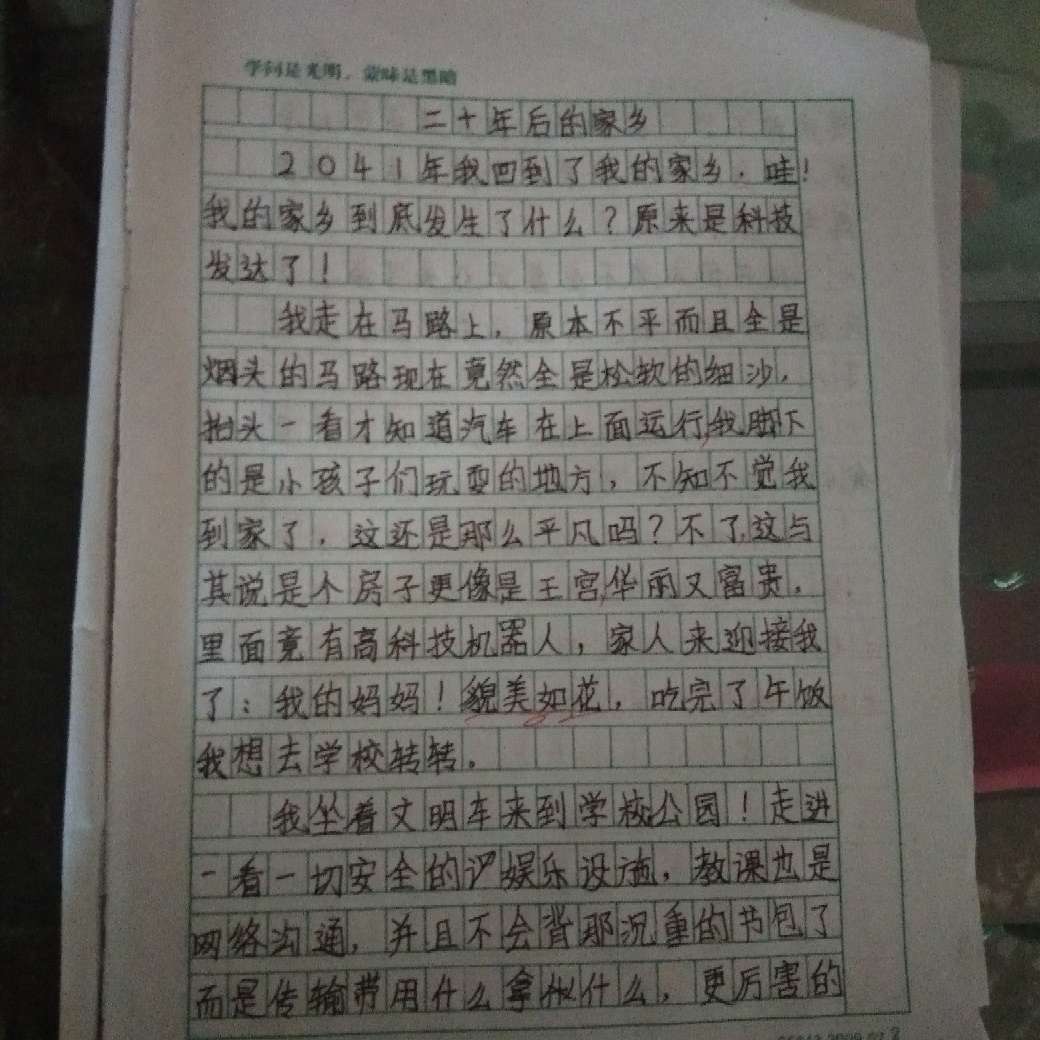 学问是光明，蒙昧是黑暗
二十年后的家乡
2041年我回到了我的家乡．哇！
我的家乡到底发生了什么？原来是科技
发达了！
我走在马路上，原本不平而且全是
烟头的马路现在竟然全是松软的细沙，
抬头一看才知道汽车在上面运行，我脚下
的是小孩子们玩耍的地方，不知不觉我
到家了，这还是那么平凡吗？不了，这与
其说是个房子更像是王宫，华丽又富贵，
里面竟有高科技机器人，家人来迎接我
了：我的妈妈！貌美如花，吃完了午饭
我想去学校转转。
我坐着文明车来到学校公园！走进
一看一切安全的娱乐设施，教课也是
网络沟通，并且不会背那沉重的书包了
而是传输带用什么拿什么，更厉害的